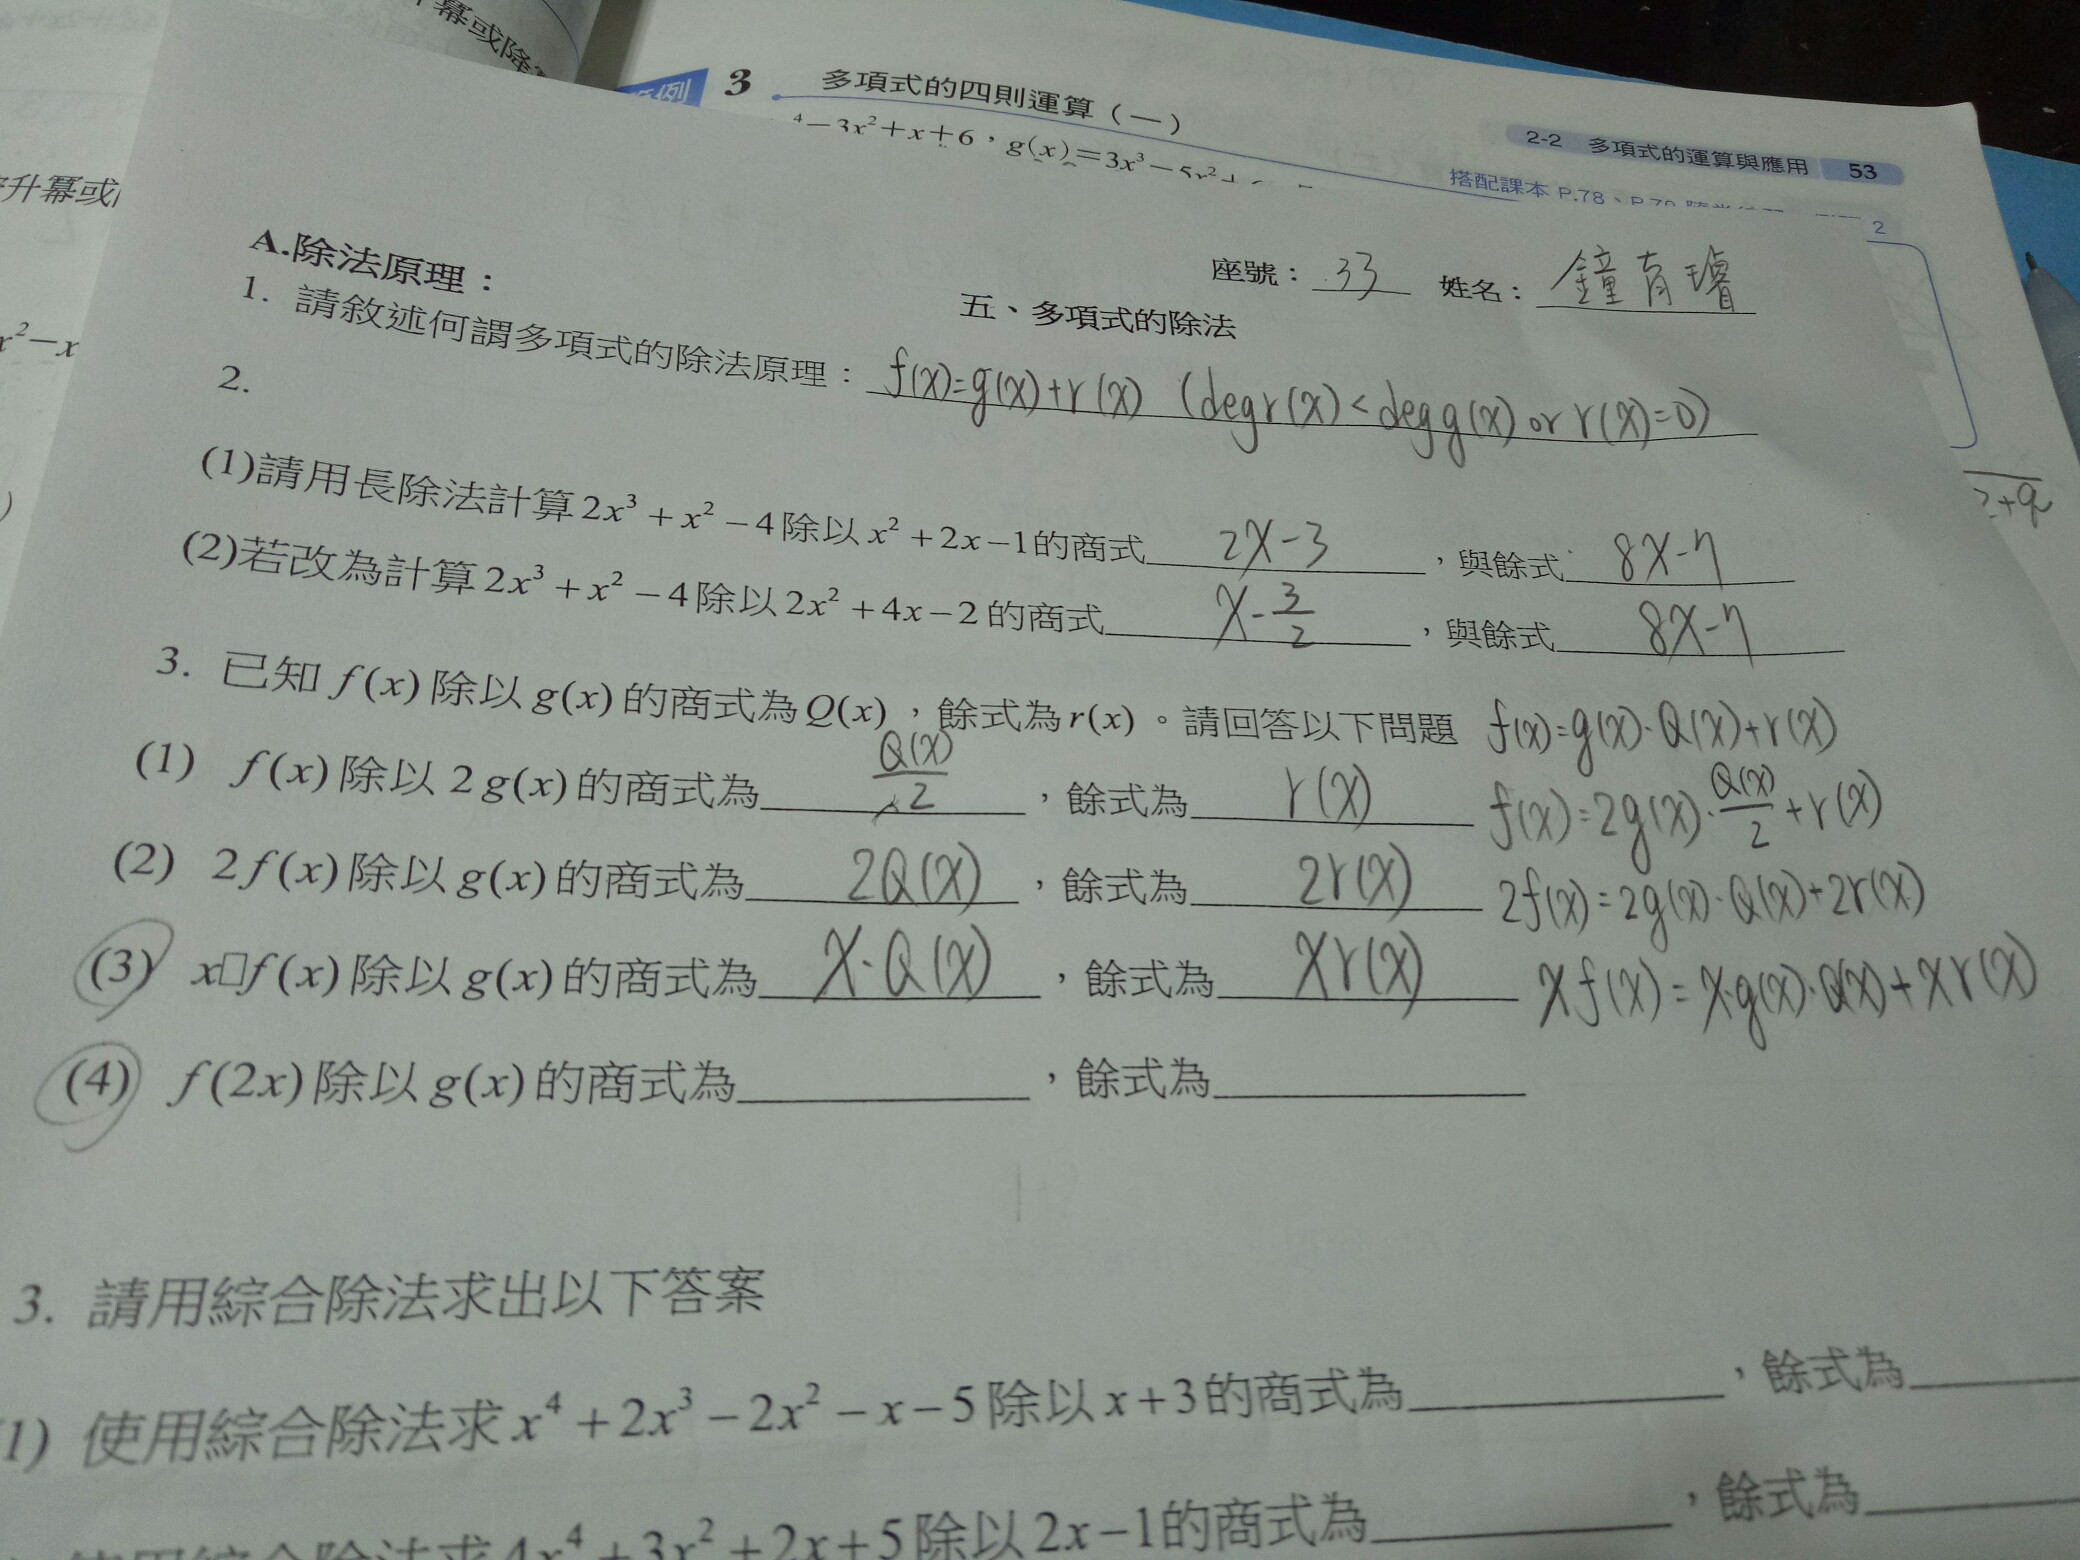 幂或降
例 3 多項式的四則運算(一)
⁴−3x²+x+6,g(x)=3x³−5x²+
2-2 多項式的運算與應用 53
搭配課本 P.78、P.79
2
升冪或
x²−x
2+9
座號:33 姓名:鐘育璿
五、多項式的除法
A.除法原理:
1. 請敘述何謂多項式的除法原理:f(x)=g(x)+r(x) (deg r(x)<deg g(x) or r(x)=0)
2.
(1)請用長除法計算2x³+x²−4除以x²+2x−1的商式 2x-3 ,與餘式 8x-7
(2)若改為計算2x³+x²−4除以2x²+4x−2的商式 x-3/2 ,與餘式 8x-7
3. 已知f(x)除以g(x)的商式為Q(x),餘式為r(x)。請回答以下問題 f(x)=g(x)·Q(x)+r(x)
(1) f(x)除以2g(x)的商式為 Q(x)/2 ,餘式為 r(x) f(x)=2g(x)·Q(x)/2+r(x)
(2) 2f(x)除以g(x)的商式為 2Q(x) ,餘式為 2r(x) 2f(x)=2g(x)·Q(x)+2r(x)
(3) x□f(x)除以g(x)的商式為 x·Q(x) ,餘式為 xr(x) xf(x)=x·g(x)·Q(x)+xr(x)
(4) f(2x)除以g(x)的商式為 ,餘式為
3. 請用綜合除法求出以下答案
1) 使用綜合除法求x⁴+2x³−2x²−x−5除以x+3的商式為 ,餘式為
使用綜合除法求4x⁴+3x²+2x+5除以2x−1的商式為 ,餘式為